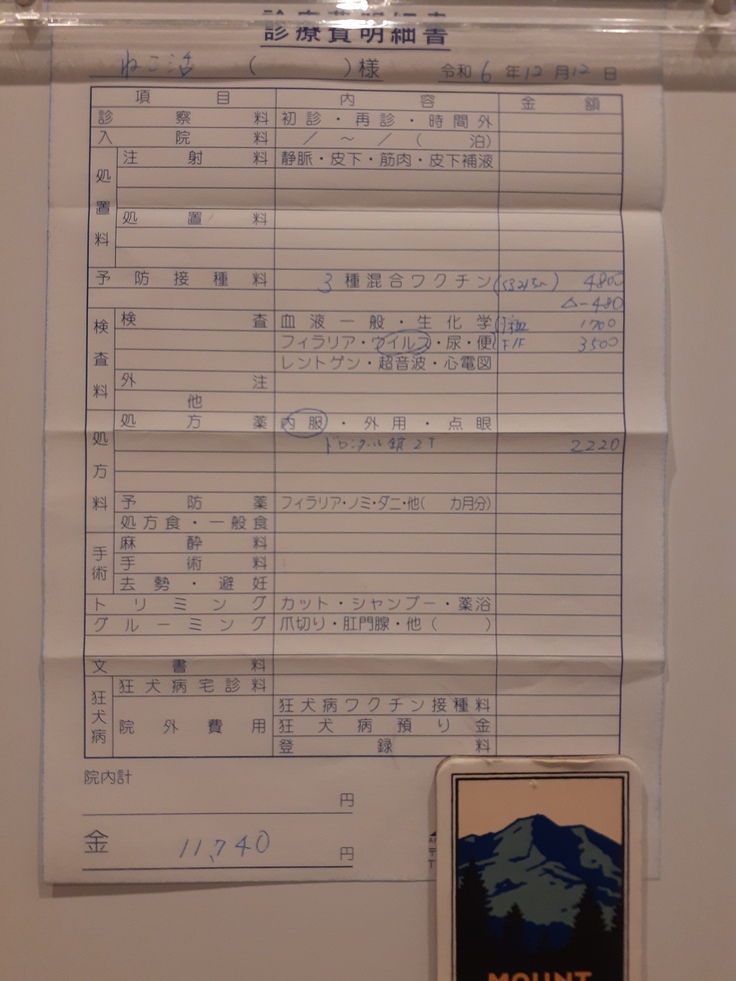 診療費明細書
ねこ活 ( ) 様 令和 6 年 12 月 12 日
項目 内容 金額
診察料 初診・再診・時間外
入院料 / ～ / ( 泊)
処置料 注射料 静脈・皮下・筋肉・皮下補液
処置料
予防接種料 3種混合ワクチン ( 4800
△-480
検査料 検査 血液一般・生化学 ( 1700
フィラリア・ウイルス・尿・便 ( F/F 3500
レントゲン・超音波・心電図
外注
他
処方料 処方薬 内服・外用・点眼
ドロンタール錠 2T 2220
予防薬 フィラリア・ノミ・ダニ・他( カ月分)
処方食・一般食
手術 麻酔料
手術料
去勢・避妊
トリミング カット・シャンプー・薬浴
グルーミング 爪切り・肛門腺・他 ( )
文書料
狂犬病 狂犬病宅診料
院外費用 狂犬病ワクチン接種料
狂犬病預り金
登録料
院内計
円
金 11,740 円
MOUNT